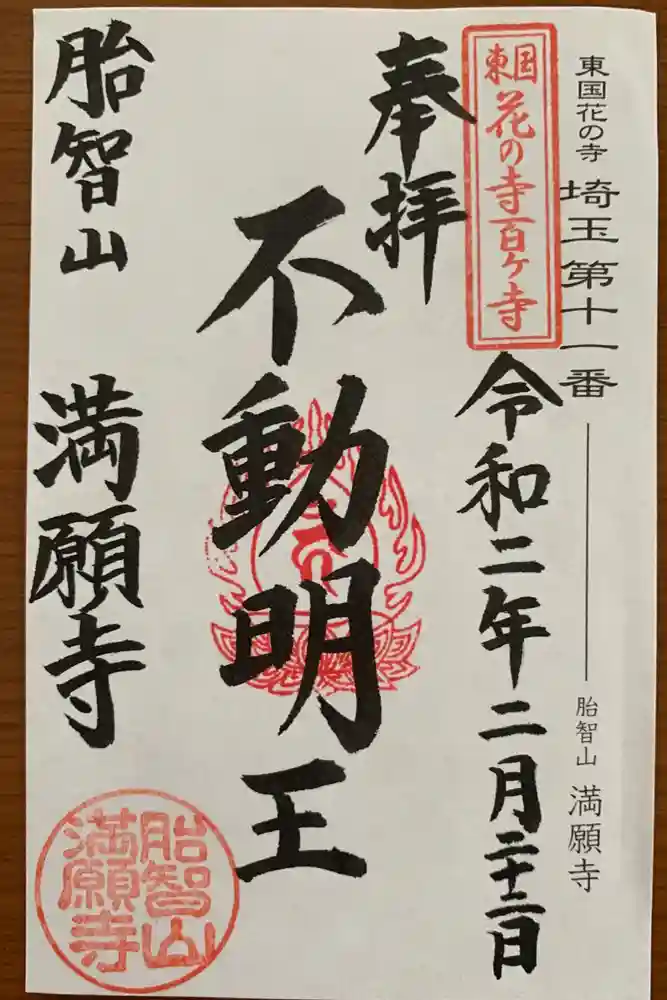 東国花の寺 埼玉第十一番 ― 胎智山 満願寺
東国
花の寺百ケ寺
令和二年二月二十二日
奉拝
不動明王
胎智山 満願寺
胎智山
満願寺